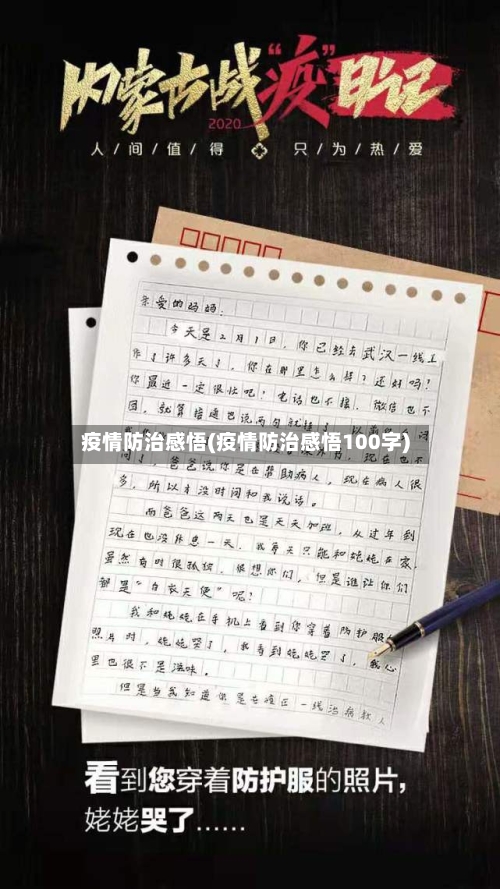 内蒙古战“疫”日记
2020
人/间/值/得 只/为/热/爱
亲爱的妈妈:
今天是2月1日,你已经去武汉一线工
作了许多天了,你在那里怎么样?还好吗?
你最近一定很忙吧?电话也不接,微信也不
回,就算接通也说两句就挂了
疫情防治感悟(疫情防治感悟100字)
了,爸爸说你是在帮助病人,现在病人很
多,所以才没时间和我说话。
而爸爸这两天也是天天加班,从过年到
现在也没休息一天,我每天只能和姥姥在家,
虽然有时很孤独,很想你们,但是谁让你们
都是“白衣天使”呢?
我和姥姥在手机上看到你穿着防护服的
照片时,姥姥哭了,我看到姥姥哭了,我心
里也很不是滋味。
但是当我知道你是去疫区一线治病救人
看到您穿着防护服的照片,
姥姥哭了......